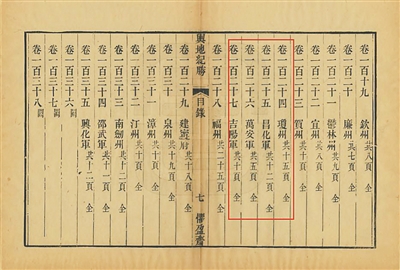 卷一百十九 欽州共八頁 全
卷一百二十 廉州共七頁 全
卷一百二十一 鬱林州共九頁 全
卷一百二十二 宜州共八頁 全
卷一百二十三 賀州共十頁 全
卷一百二十四 瓊州共十五頁 全
卷一百二十五 昌化軍共十二頁 全
卷一百二十六 萬安軍共五頁 全
卷一百二十七 吉陽軍共十頁 全
卷一百二十八 福州共二十五頁 全
輿地紀勝 目錄 七 懼盈齋
卷一百二十九 建寧府共十八頁 全
卷一百三十 泉州共十九頁 全
卷一百三十一 漳州共十一頁 全
卷一百三十二 汀州共十一頁 全
卷一百三十三 南劍州共十二頁 全
卷一百三十四 邵武軍共十一頁 全
卷一百三十五 興化軍共十二頁 全
卷一百三十六 闕
卷一百三十七 闕
卷一百三十八 闕